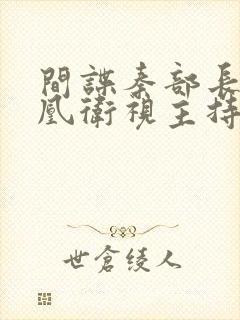 間諜秦部長
凰衛視主持
世倉綾人